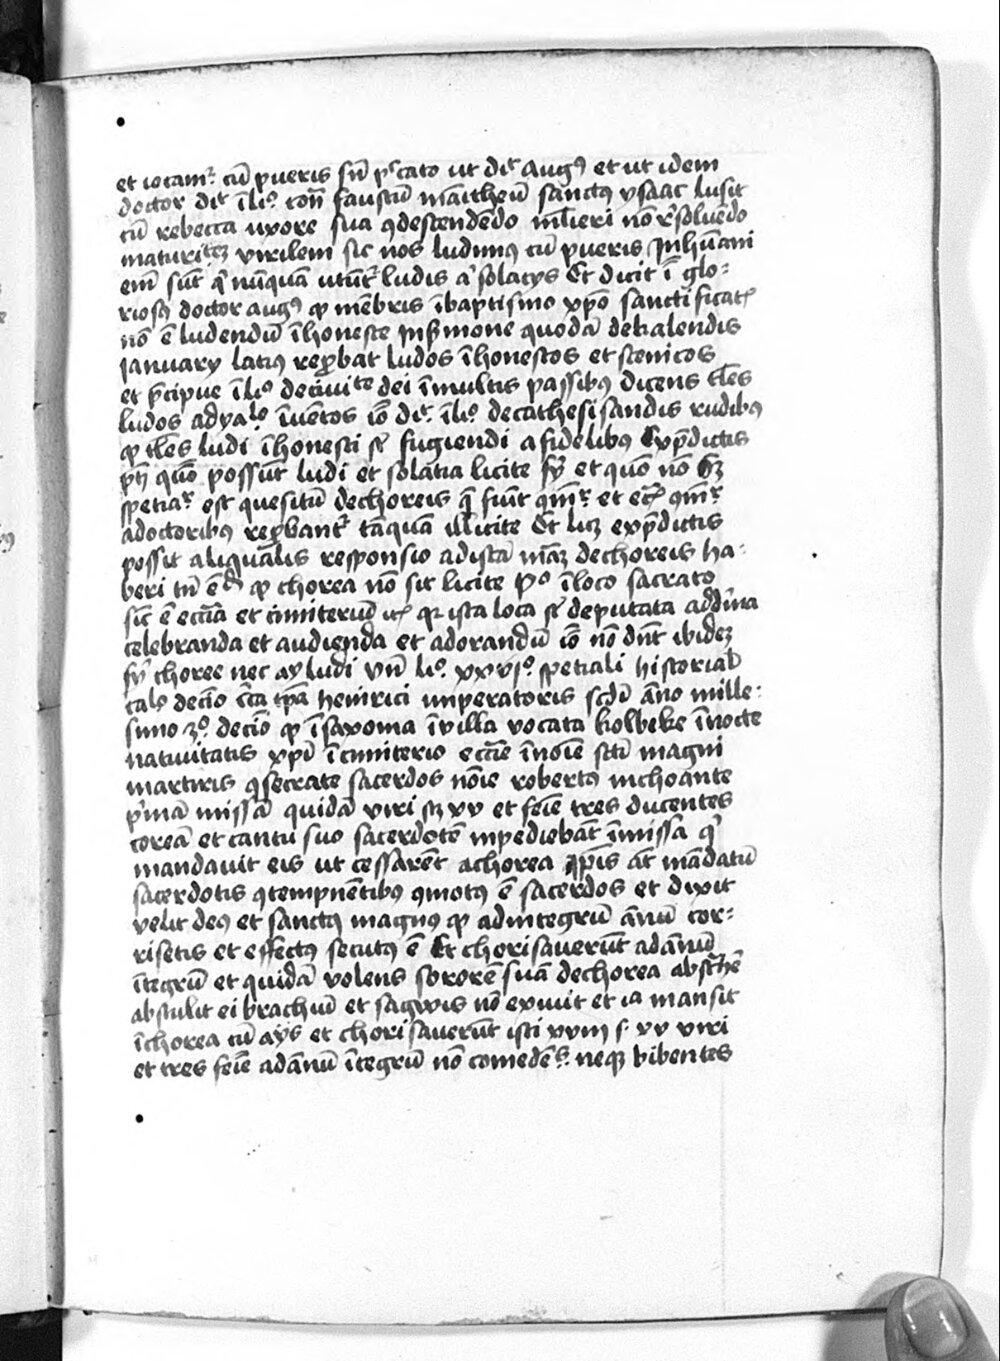 et iocam᷑ cū pueris sn̄ pᶜcato ut dit᷑ Augꝰ et ut idem
doctor dit᷑ ī liᵒ con̄ faustū maītheū sanctꝰ ysaac lusit
cū rebecca uxore sua ꝯdescendēdo ml̄ieri nō rᵉsoluēdo
maturiteꝫ virilem sic nos ludimꝰ cū pueris Inhūani
em̄ sūt qⁱ nūquā utūt᷑ ludis aᶜ solacys Et dicit ī glo-
riosꝰ doctor augꝰ ꝙ mēbris ī baptismo xp̄o sanctificat᷑
nō ē ludendū īhoneste In sermone quodā de kalendis
January latiꝰ rep̱bat ludos īhonestos et scenicos
et p̄cipue ī liᵒ de ciuite dei ī multis passibꝰ dicens tl̄es
ludos a dyaᵇlo īuētos iō dit᷑ ī liᵒ de cathesisandis rudibꝰ
ꝙ tl̄es ludi īhonesti st̄ fugiendi a fidelibꝰ Ex p̄dictis
ptꝫ quō possūt ludi et solatia licite fi᷑ et quō nō Sꝫ
spetiar᷑ est quesitū de choreis q̄ fiūt
a doctoribꝰ rep̱bant᷑ tāquā illicite Et licꝫ ex p̄dictis
possit aliqualis responsio ad istā mā̄ꝫ de choreis ha-
beri tn̄ ꝙ chorea nō sit licite pᵒ ī loco sacrato
sic ē ecc̄ia et cimiteriū ꝛc̄ qꝛ ista loca st̄ deputata ad diᵘina
celebranda et audienda et adorandū iō nō dn̄t ibideꝫ
fi᷑ choree nec aly ludi vn̄ liᵒ xxvjᵒ spetiali historiali
calᵒ decīo c̄ca tp̄a heinrici imperatoris scd̄i āno mille-
simo decīo ꝙ ī saxonia ī villa vocata kolbeke ī nocte
natiuitatis xp̄i ī cimiterio ecc̄ie ī noīe sc̄ti magni
martiris ꝯsecrate sacerdos noīe robertꝰ inchoante
pⁱmā missā quidā viri sꝫ xv et feīe tres ducentes
coreā et cantu suo sacerdotē inpediebāt ī missa qⁱ
mandauit eis ut cessarēt a chorea ip̄is āt mādatū
sacerdotis ꝯtempnētibꝰ ꝯmotꝰ ē sacerdos et dixit
velit deꝰ et sanctꝰ magnꝰ ꝙ ad integrū ānū cor-
risetis et effectꝰ secutꝰ ē Et chorisauerūt ad ānū
ītegrū et quidā volens sororē suā de chorea abst͛hē
abstulit ei brachiū et sagwis nō exiuit et ia mansit
ī chorea cū alys et chorisauerūt isti xviij s· xv viri
et tres feīe ad ānū ītegrū nō comedēs. neqꝫ bibentes